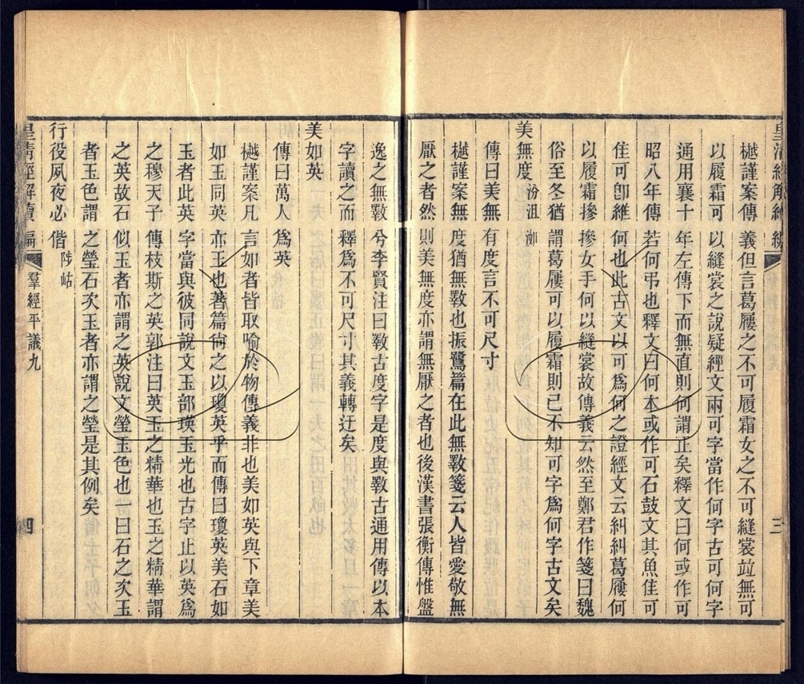 皇清經解續編
三
樾謹案傳義但言葛屨之不可履霜女之不可縫裳竝無可
以履霜可以縫裳之說疑經文兩可字當作何字古可何字
通用襄十年左傳下而無直則何謂正矣釋文曰何或作可
昭八年傳若何弔也釋文曰何本或作可石鼓文其魚隹可
隹可卽維何也此古文以可爲何之證經文云糾糾葛屨何
以履霜摻摻女手何以縫裳故傳義云然至鄭君作箋曰魏
俗至冬猶謂葛屨可以履霜則已不知可字爲何字古文矣
美無度 汾沮洳
傳曰美無有度言不可尺寸
樾謹案無度猶無斁也振鷺篇在此無斁箋云人皆愛敬無
厭之者然則美無度亦謂無厭之者也後漢書張衡傳惟盤
逸之無斁兮李賢注曰斁古度字是度與斁古通用傳以本
字讀之而釋爲不可尺寸其義轉迂矣
美如英
傳曰萬人爲英
樾謹案凡言如者皆取喻於物傳義非也美如英與下章美
如玉同英亦玉也著篇尙之以瓊英乎而傳曰瓊英美石如
玉者此英字當與彼同說文玉部瑛玉光也古字止以英爲
之穆天子傳枝斯之英郭注曰英玉之精華也玉之精華謂
之英故石似玉者亦謂之英說文瑩玉色也一曰石之次玉
者玉色謂之瑩石次玉者亦謂之瑩是其例矣
行役夙夜必偕 陟岵
皇清經解續編
羣經平議九
四